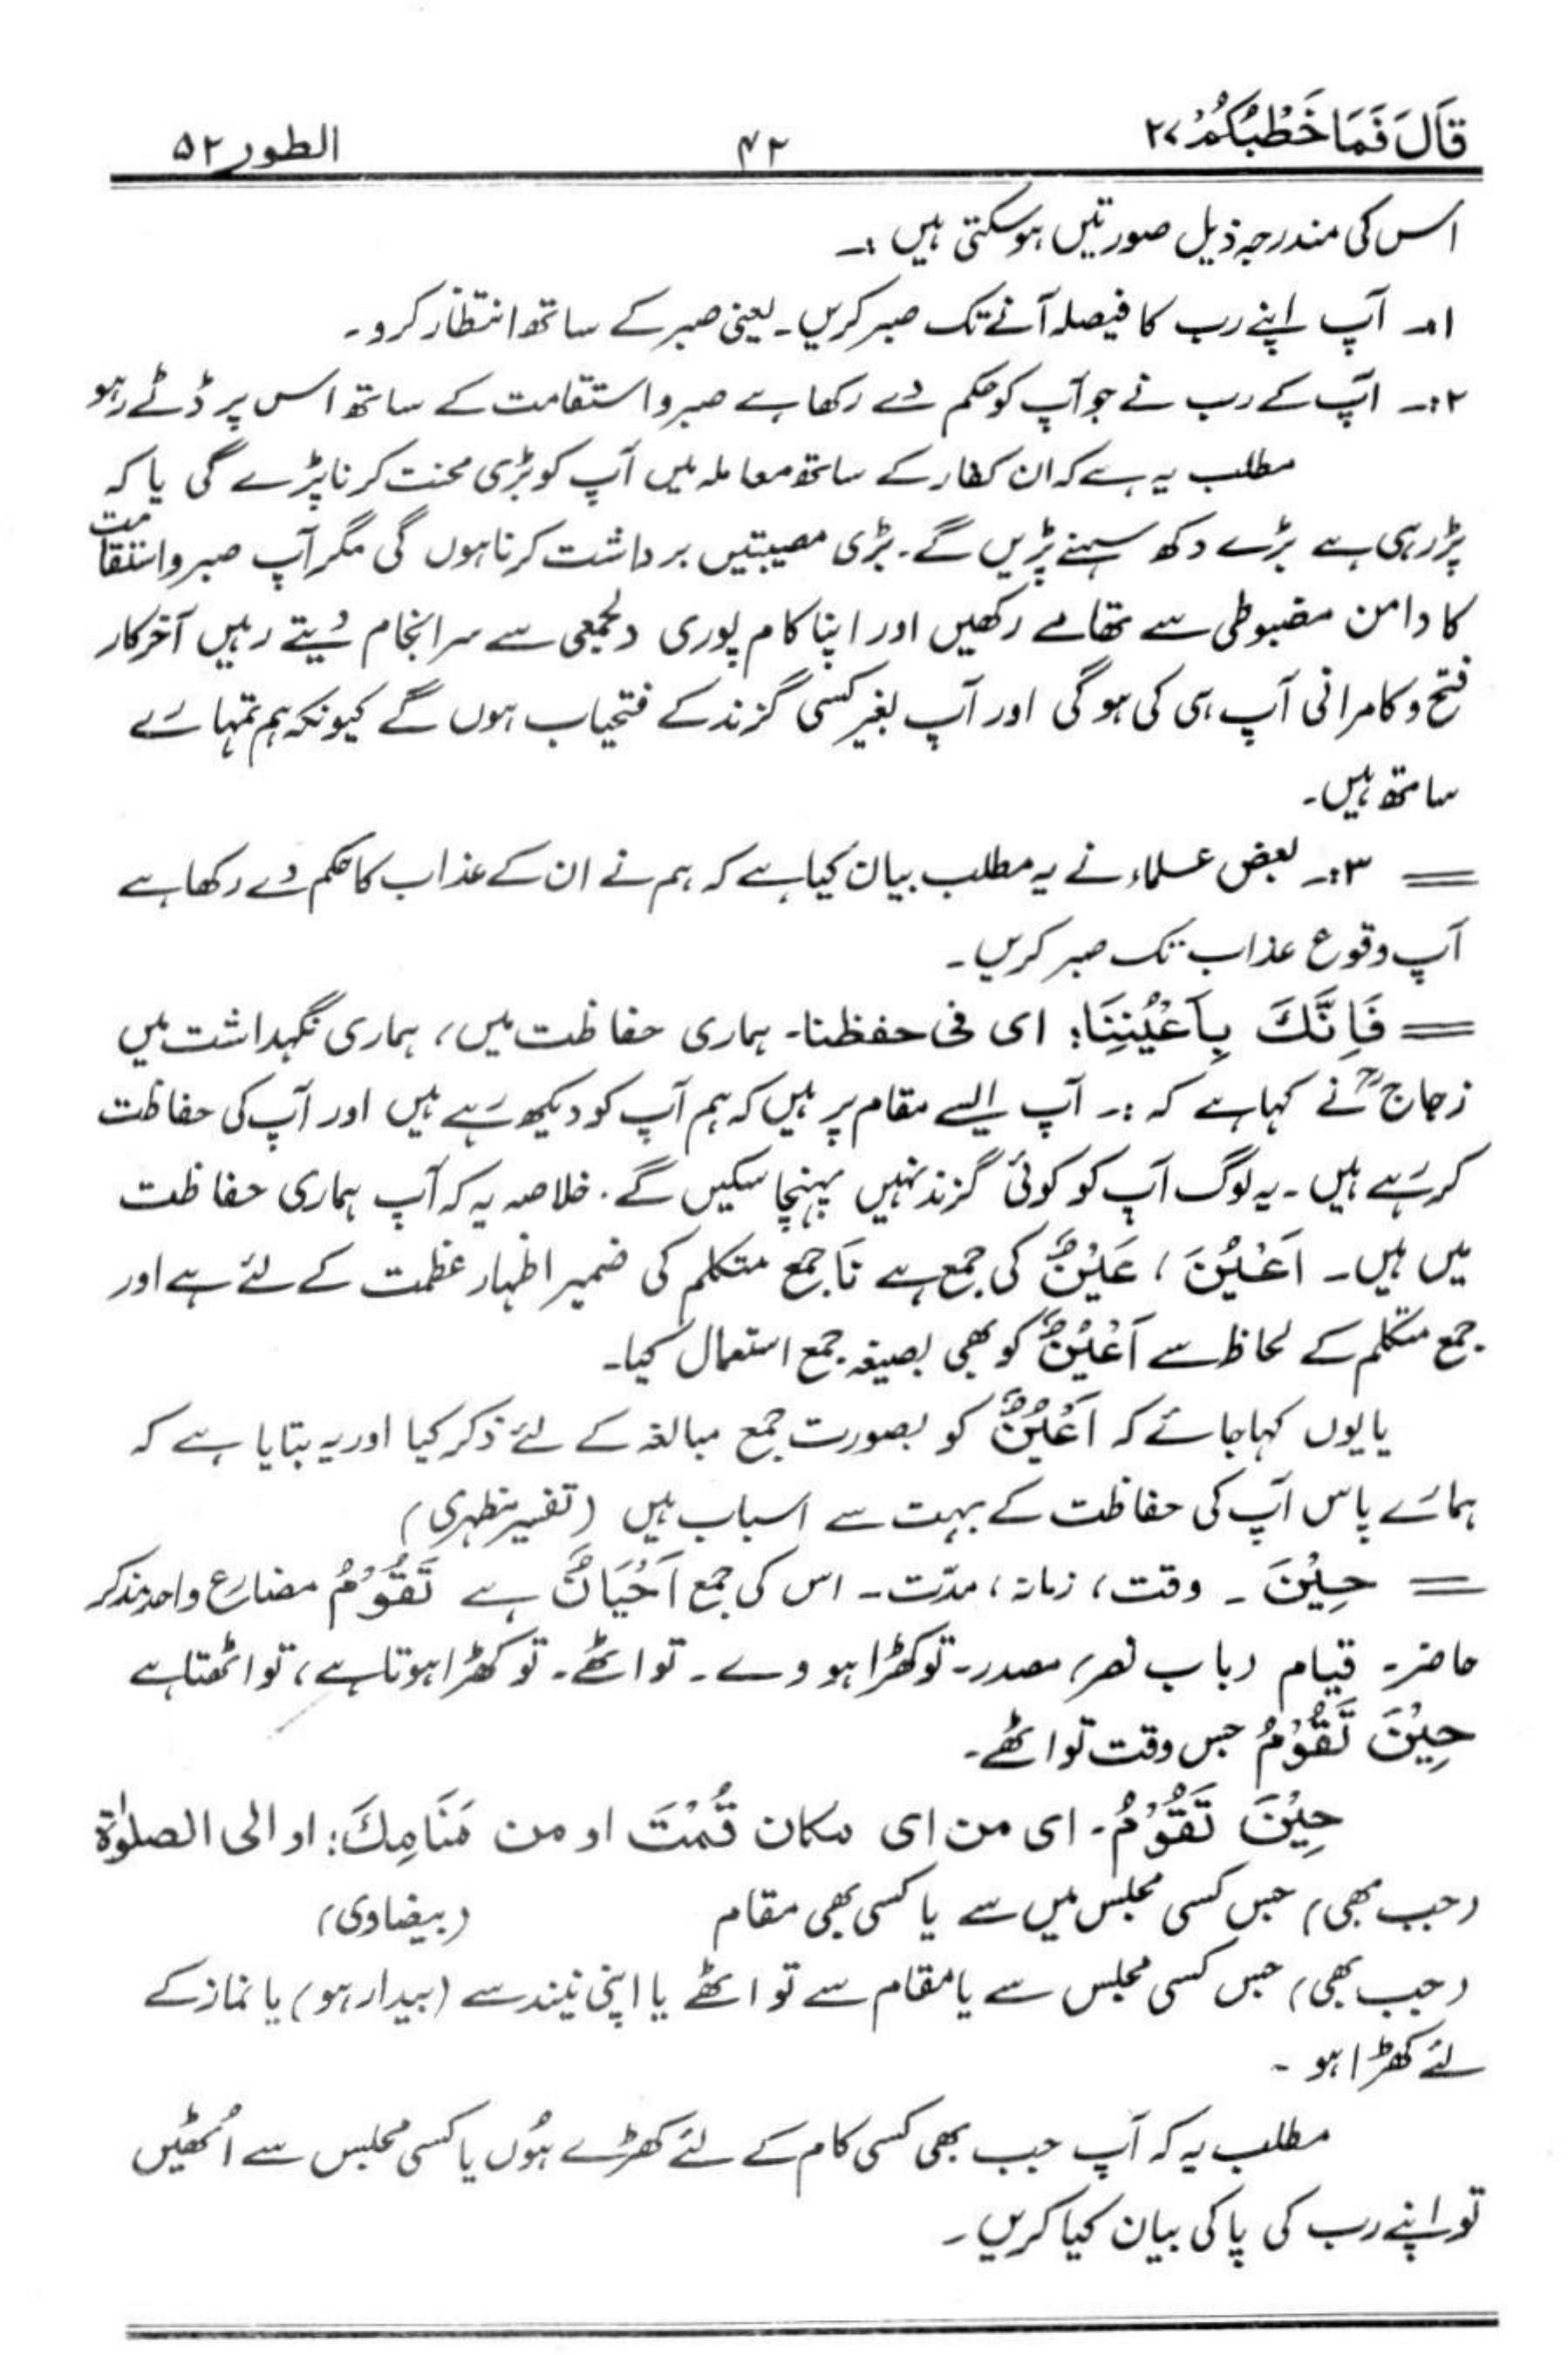 قَالَ فَمَا خَطْبُكُمْ ۲۷ ۴۲ الطور ۵۲
اس کی مندرجہ ذیل صورتیں ہو سکتی ہیں :۔
۱:۔ آپ اپنے رب کا فیصلہ آنے تک صبر کریں۔ یعنی صبر کے ساتھ انتظار کرو۔
۲:۔ آپ کے رب نے جو آپ کو حکم دے رکھا ہے صبر و استقامت کے ساتھ اس پر ڈٹے رہو
مطلب یہ ہے کہ ان کفار کے ساتھ معاملہ میں آپ کو بڑی محنت کرنا پڑے گی یا کہ
پڑ رہی ہے بڑے دکھ سہنے پڑیں گے۔ بڑی مصیبتیں برداشت کرنا ہوں گی مگر آپ صبر و استقامت
کا دامن مضبوطی سے تھامے رکھیں اور اپنا کام پوری دلجمعی سے سرانجام دیتے رہیں آخر کار
فتح و کامرانی آپ ہی کی ہو گی اور آپ بغیر کسی گزند کے فتحیاب ہوں گے کیونکہ ہم تمہارے
ساتھ ہیں۔
= ۳:۔ بعض علماء نے یہ مطلب بیان کیا ہے کہ ہم نے ان کے عذاب کا حکم دے رکھا ہے
آپ وقوع عذاب تک صبر کریں۔
= فَاِنَّكَ بِاَعْيُنِنَا: ای فی حفظنا۔ ہماری حفاظت میں، ہماری نگہداشت میں
زجاجؒ نے کہا ہے کہ :۔ آپ ایسے مقام پر ہیں کہ ہم آپ کو دیکھ رہے ہیں اور آپ کی حفاظت
کر رہے ہیں۔ یہ لوگ آپ کو کوئی گزند نہیں پہنچا سکیں گے۔ خلاصہ یہ کہ آپ ہماری حفاظت
میں ہیں۔ اَعْيُنَ، عَيْنٌ کی جمع ہے نَا جمع متکلم کی ضمیر اظہار عظمت کے لئے ہے اور
جمع متکلم کے لحاظ سے اَعْيُنٌ کو بھی بصیغہ جمع استعمال کیا۔
یا یوں کہا جائے کہ اَعْيُنٌ کو بصورت جمع مبالغہ کے لئے ذکر کیا اور یہ بتایا ہے کہ
ہمارے پاس آپ کی حفاظت کے بہت سے اسباب ہیں (تفسیر مظہری)
= حِيْنَ ۔ وقت، زمانہ، مدّت۔ اس کی جمع اَحْيَانٌ ہے تَقُوْمُ مضارع واحد مذکر
حاضر۔ قیام (باب نصر) مصدر۔ تو کھڑا ہووے۔ تو اٹھے۔ تو کھڑا ہوتا ہے، تو اٹھتا ہے
حِيْنَ تَقُوْمُ جس وقت تو اٹھے۔
حِيْنَ تَقُوْمُ۔ ای من ای مکان قُمْتَ او من مَنَامِكَ: او الی الصلوٰۃ
(جب بھی) جس کسی مجلس میں سے یا کسی بھی مقام (بیضاوی)
(جب بھی) جس کسی مجلس سے یا مقام سے تو اٹھے یا اپنی نیند سے (بیدار ہو) یا نماز کے
لئے کھڑا ہو ۔
مطلب یہ کہ آپ جب بھی کسی کام کے لئے کھڑے ہُوں یا کسی مجلس سے اُٹھیں
تو اپنے رب کی پاکی بیان کیا کریں۔